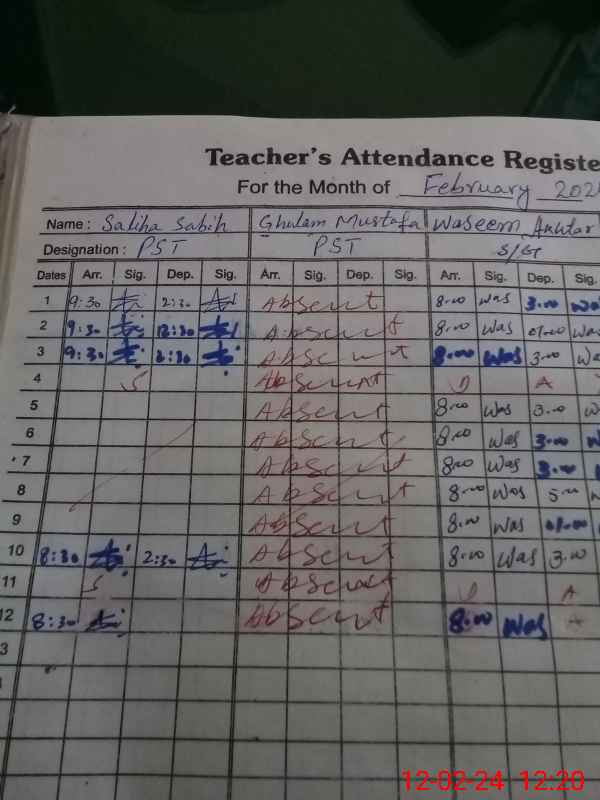 Teacher's Attendance Registe
For the Month of February 202
Name: Saliha Sabih Ghulam Mustafa Waseem Akhtar
Designation: PST PST S/G
Dates Arr. Sig. Dep. Sig. Arr. Sig. Dep. Sig. Arr. Sig. Dep. Sig.
1 9:30 2:30 Absent 8.00 Was 3.00 Wa
2 9:30 12:30 Absent 8.00 Was 01.00 Was
3 9:30 2:30 Absent 8.00 Was 3.00 Wa
4 S Absent A
5 Absent 8.00 Was 3.00 W
6 Absent 8.00 Was 3.00 W
7 Absent 8.00 Was 3.00 W
8 Absent 8.00 Was
9 Absent 8.00 Was 01.00 W
10 8:30 2:30 Absent 8.00 Was 3.00
11 S Absent A
12 8:30 Absent 8.00 Was A
3
12-02-24 12:20